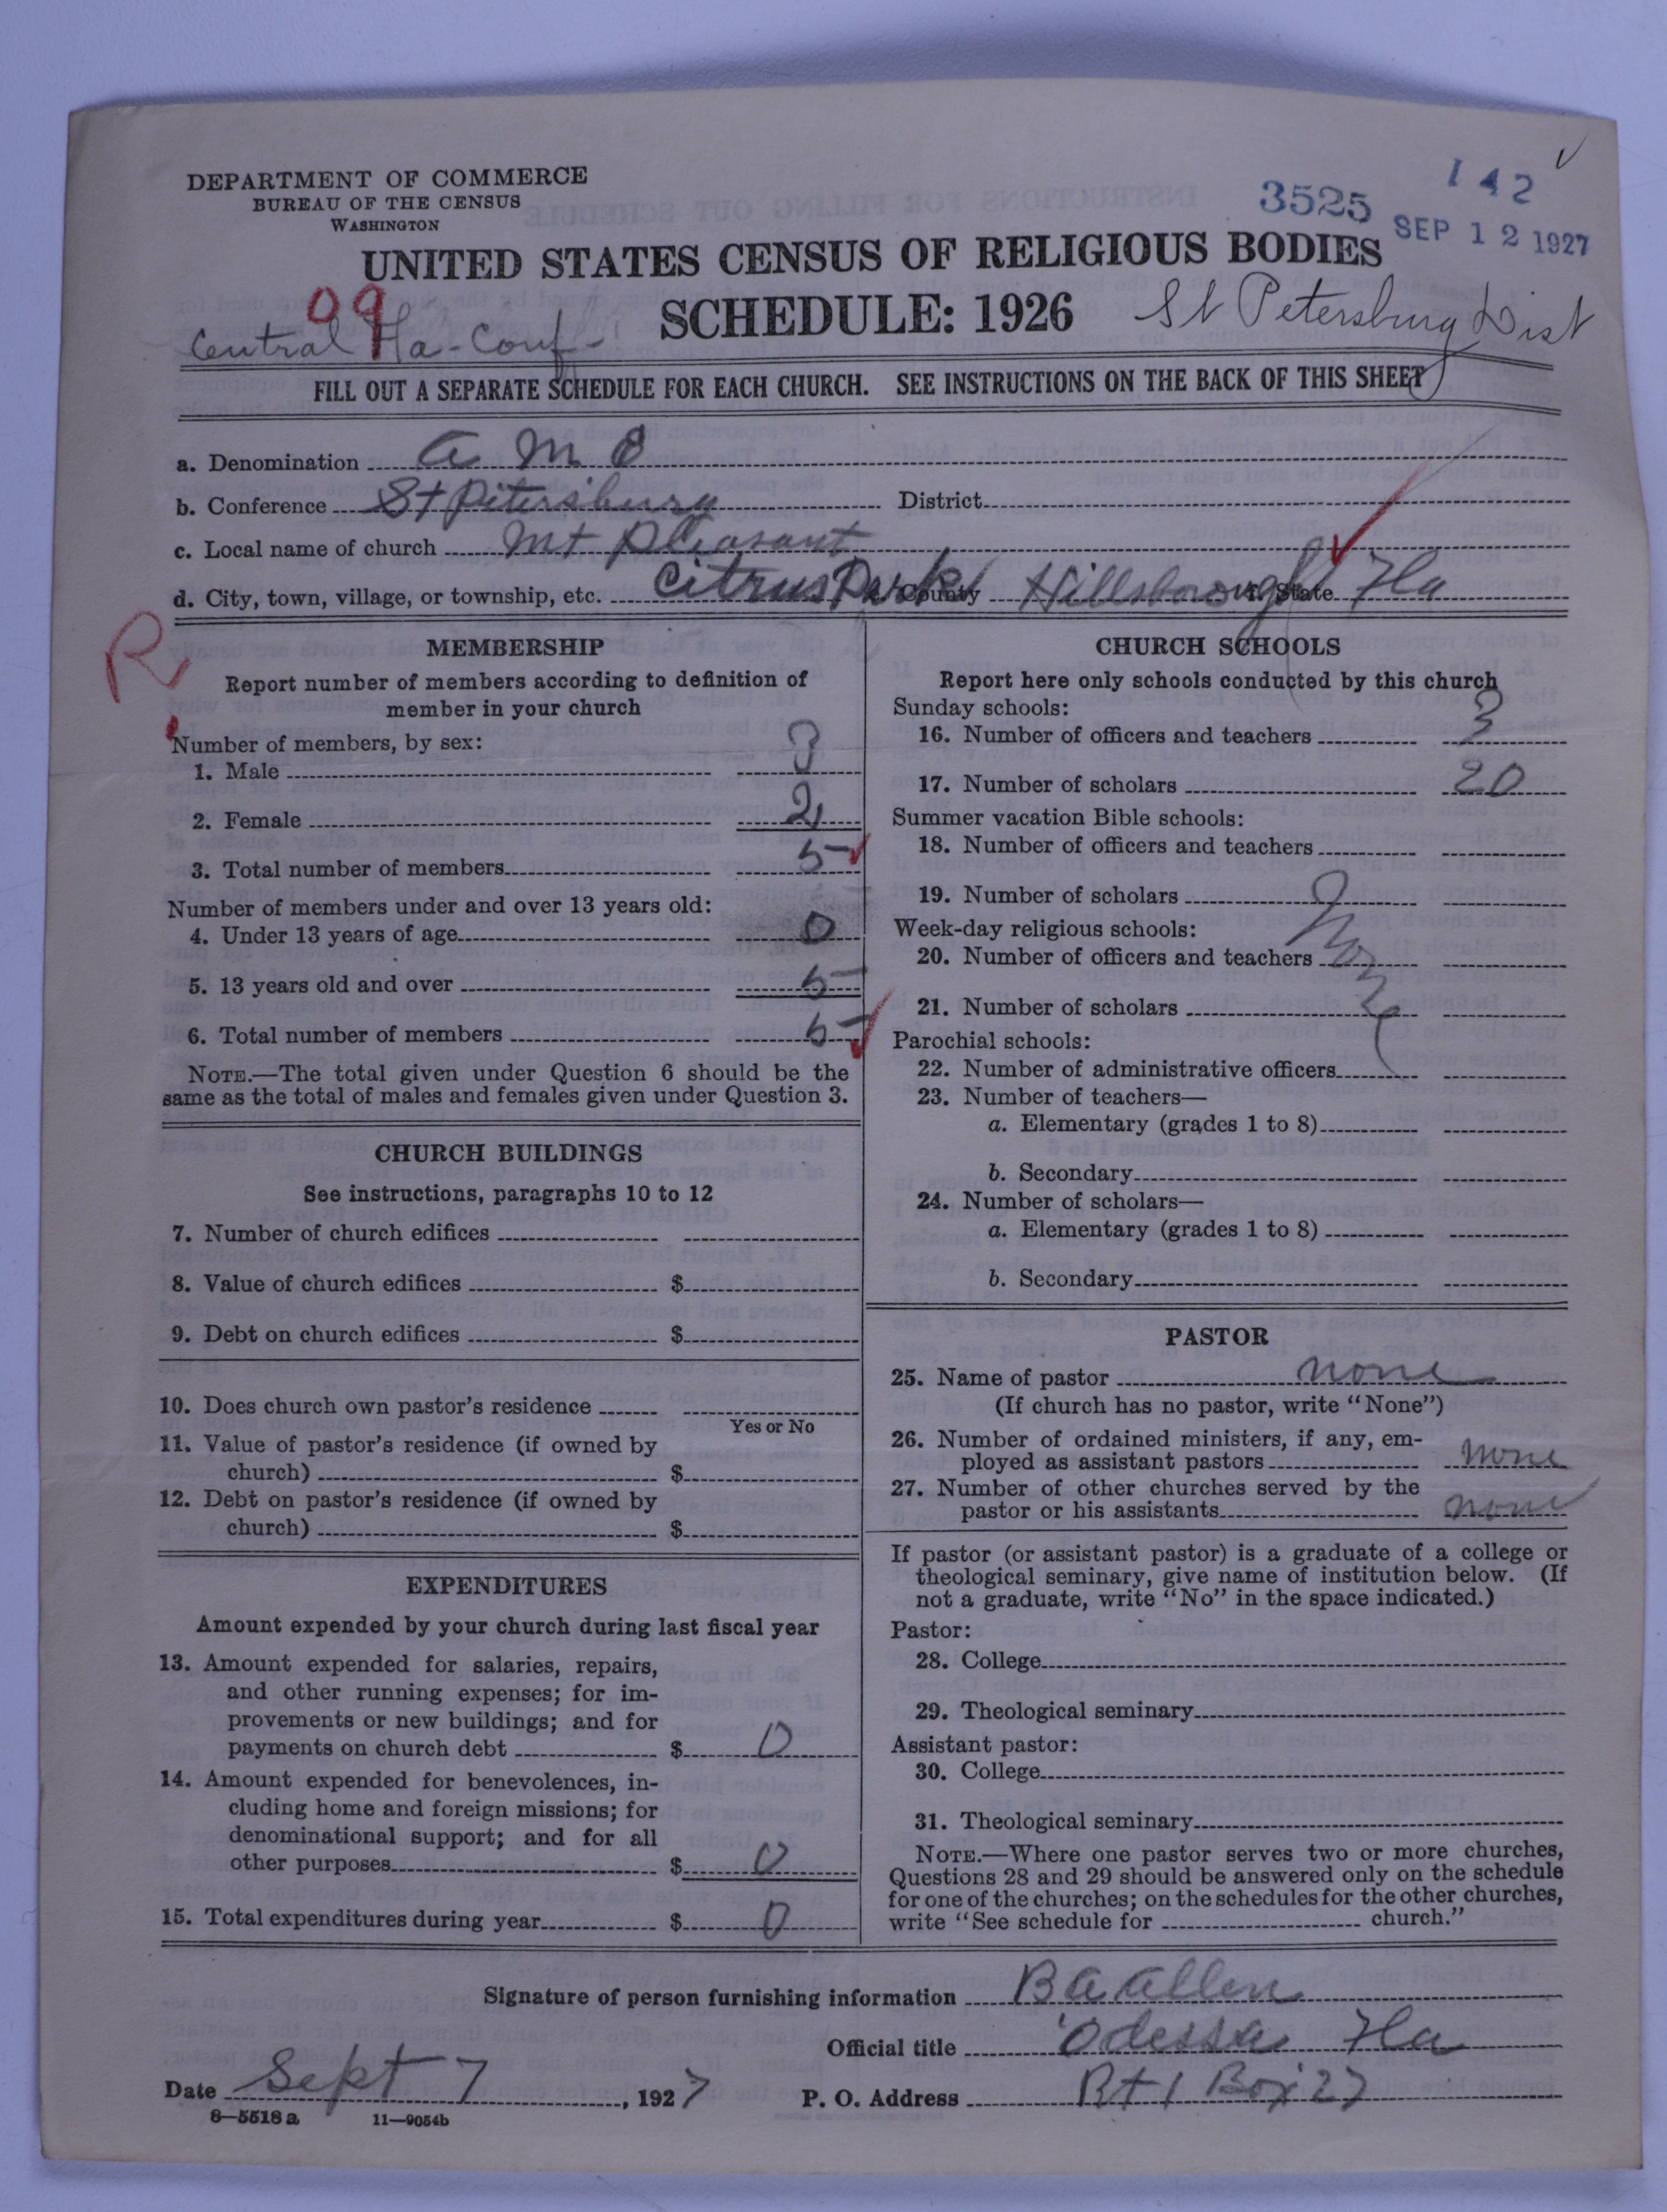 DEPARTMENT OF COMMERCE
BUREAU OF THE CENSUS
WASHINGTON
3525
142
SEP 12 1927
UNITED STATES CENSUS OF RELIGIOUS BODIES
SCHEDULE: 1926
09
Central Fla-Conf-
St Petersburg Dist
FILL OUT A SEPARATE SCHEDULE FOR EACH CHURCH. SEE INSTRUCTIONS ON THE BACK OF THIS SHEET
a. Denomination A M E
b. Conference St Petersburg District
c. Local name of church Mt Pleasant
d. City, town, village, or township, etc. Citrus Park County Hillsborough State Fla
R
MEMBERSHIP
Report number of members according to definition of
member in your church
Number of members, by sex:
1. Male 3
2. Female 2
3. Total number of members 5
Number of members under and over 13 years old:
4. Under 13 years of age 0
5. 13 years old and over 5
6. Total number of members 5
NOTE.—The total given under Question 6 should be the
same as the total of males and females given under Question 3.
CHURCH BUILDINGS
See instructions, paragraphs 10 to 12
7. Number of church edifices
8. Value of church edifices $
9. Debt on church edifices $
10. Does church own pastor's residence
Yes or No
11. Value of pastor's residence (if owned by
church) $
12. Debt on pastor's residence (if owned by
church) $
EXPENDITURES
Amount expended by your church during last fiscal year
13. Amount expended for salaries, repairs,
and other running expenses; for im-
provements or new buildings; and for
payments on church debt $ 0
14. Amount expended for benevolences, in-
cluding home and foreign missions; for
denominational support; and for all
other purposes $ 0
15. Total expenditures during year $ 0
CHURCH SCHOOLS
Report here only schools conducted by this church
Sunday schools:
16. Number of officers and teachers 3
17. Number of scholars 20
Summer vacation Bible schools:
18. Number of officers and teachers
19. Number of scholars
Week-day religious schools:
20. Number of officers and teachers
21. Number of scholars
Parochial schools:
22. Number of administrative officers
23. Number of teachers—
a. Elementary (grades 1 to 8)
b. Secondary
24. Number of scholars—
a. Elementary (grades 1 to 8)
b. Secondary
PASTOR
25. Name of pastor none
(If church has no pastor, write "None")
26. Number of ordained ministers, if any, em-
ployed as assistant pastors none
27. Number of other churches served by the
pastor or his assistants none
If pastor (or assistant pastor) is a graduate of a college or
theological seminary, give name of institution below. (If
not a graduate, write "No" in the space indicated.)
Pastor:
28. College
29. Theological seminary
Assistant pastor:
30. College
31. Theological seminary
NOTE.—Where one pastor serves two or more churches,
Questions 28 and 29 should be answered only on the schedule
for one of the churches; on the schedules for the other churches,
write "See schedule for church."
Signature of person furnishing information B A Allen
Official title Odessa Fla
Date Sept 7, 1927 P. O. Address Rt 1 Box 27
8—5518 a 11—9054b